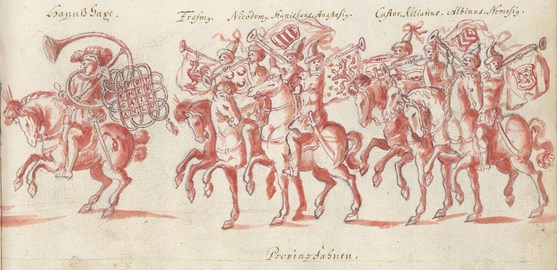 Hannß Saxe.
Erasmg. Nicodemg. Stanislaus. Anastasig.
Castor. Kilianus. Albinus. Nemesig.
Provinz Fahnen.